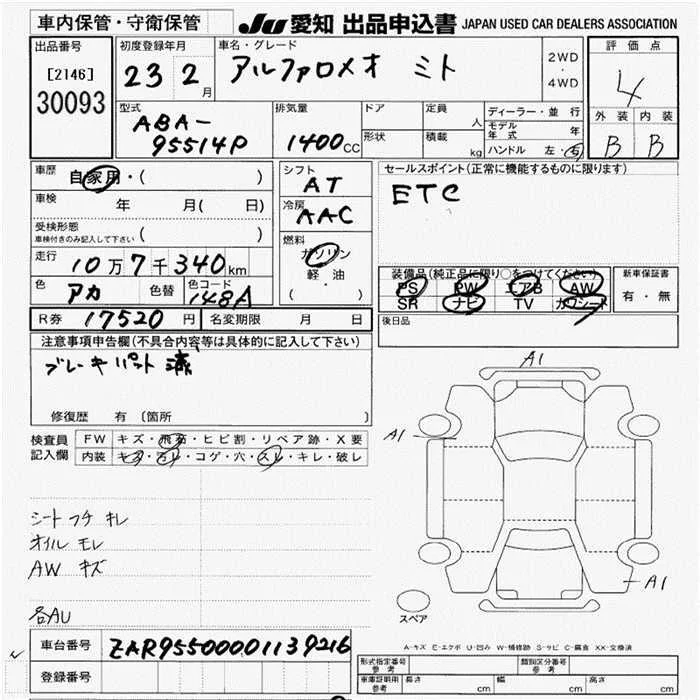 車内保管・守衛保管
JU 愛知 出品申込書 JAPAN USED CAR DEALERS ASSOCIATION
出品番号
[2146]
30093
初度登録年月
23 2月
車名・グレード
アルファロメオ ミト
2WD
・
4WD
評価点
4
外装 内装
B B
型式
ABA-
95514P
排気量
1400cc
ドア
形状
定員 人
積載 kg
ディーラー・並行
モデル年式 年
ハンドル 左・右
車歴 自家用・( )
車検 年 月( 日)
受検形態
車検付きのみ記入して下さい ( )
走行 10万7千340km
色 アカ 色替 色コード 148A
シフト
AT
冷房
AAC
燃料
ガソリン
・
軽油
( )
セールスポイント(正常に機能するものに限ります)
ETC
装備品(純正品に限り○をつけてください)
PS PW エアB AW
SR ナビ TV カワシート
新車保証書
有・無
R券 17520円 名変期限 月 日
後日品
注意事項申告欄(不具合内容等は具体的に記入して下さい)
ブレーキパット
修復歴 有 (箇所 )
検査員記入欄
FW キズ・飛石・ヒビ割・リペア跡・X要
内装 キズ・汚レ・コゲ・穴・スレ・キレ・破レ
シート フチ キレ
オイル モレ
AW キズ
各AU
A1
A1
A1
スペア
A-キズ E-エクボ U-凹み W-補修跡 S-サビ C-腐食 XX-交換済
車台番号 ZAR95500001139216
登録番号
形式指定番号 参考
類別区分番号 参考
車庫証明用 参考 長さ cm 幅 cm 高さ cm